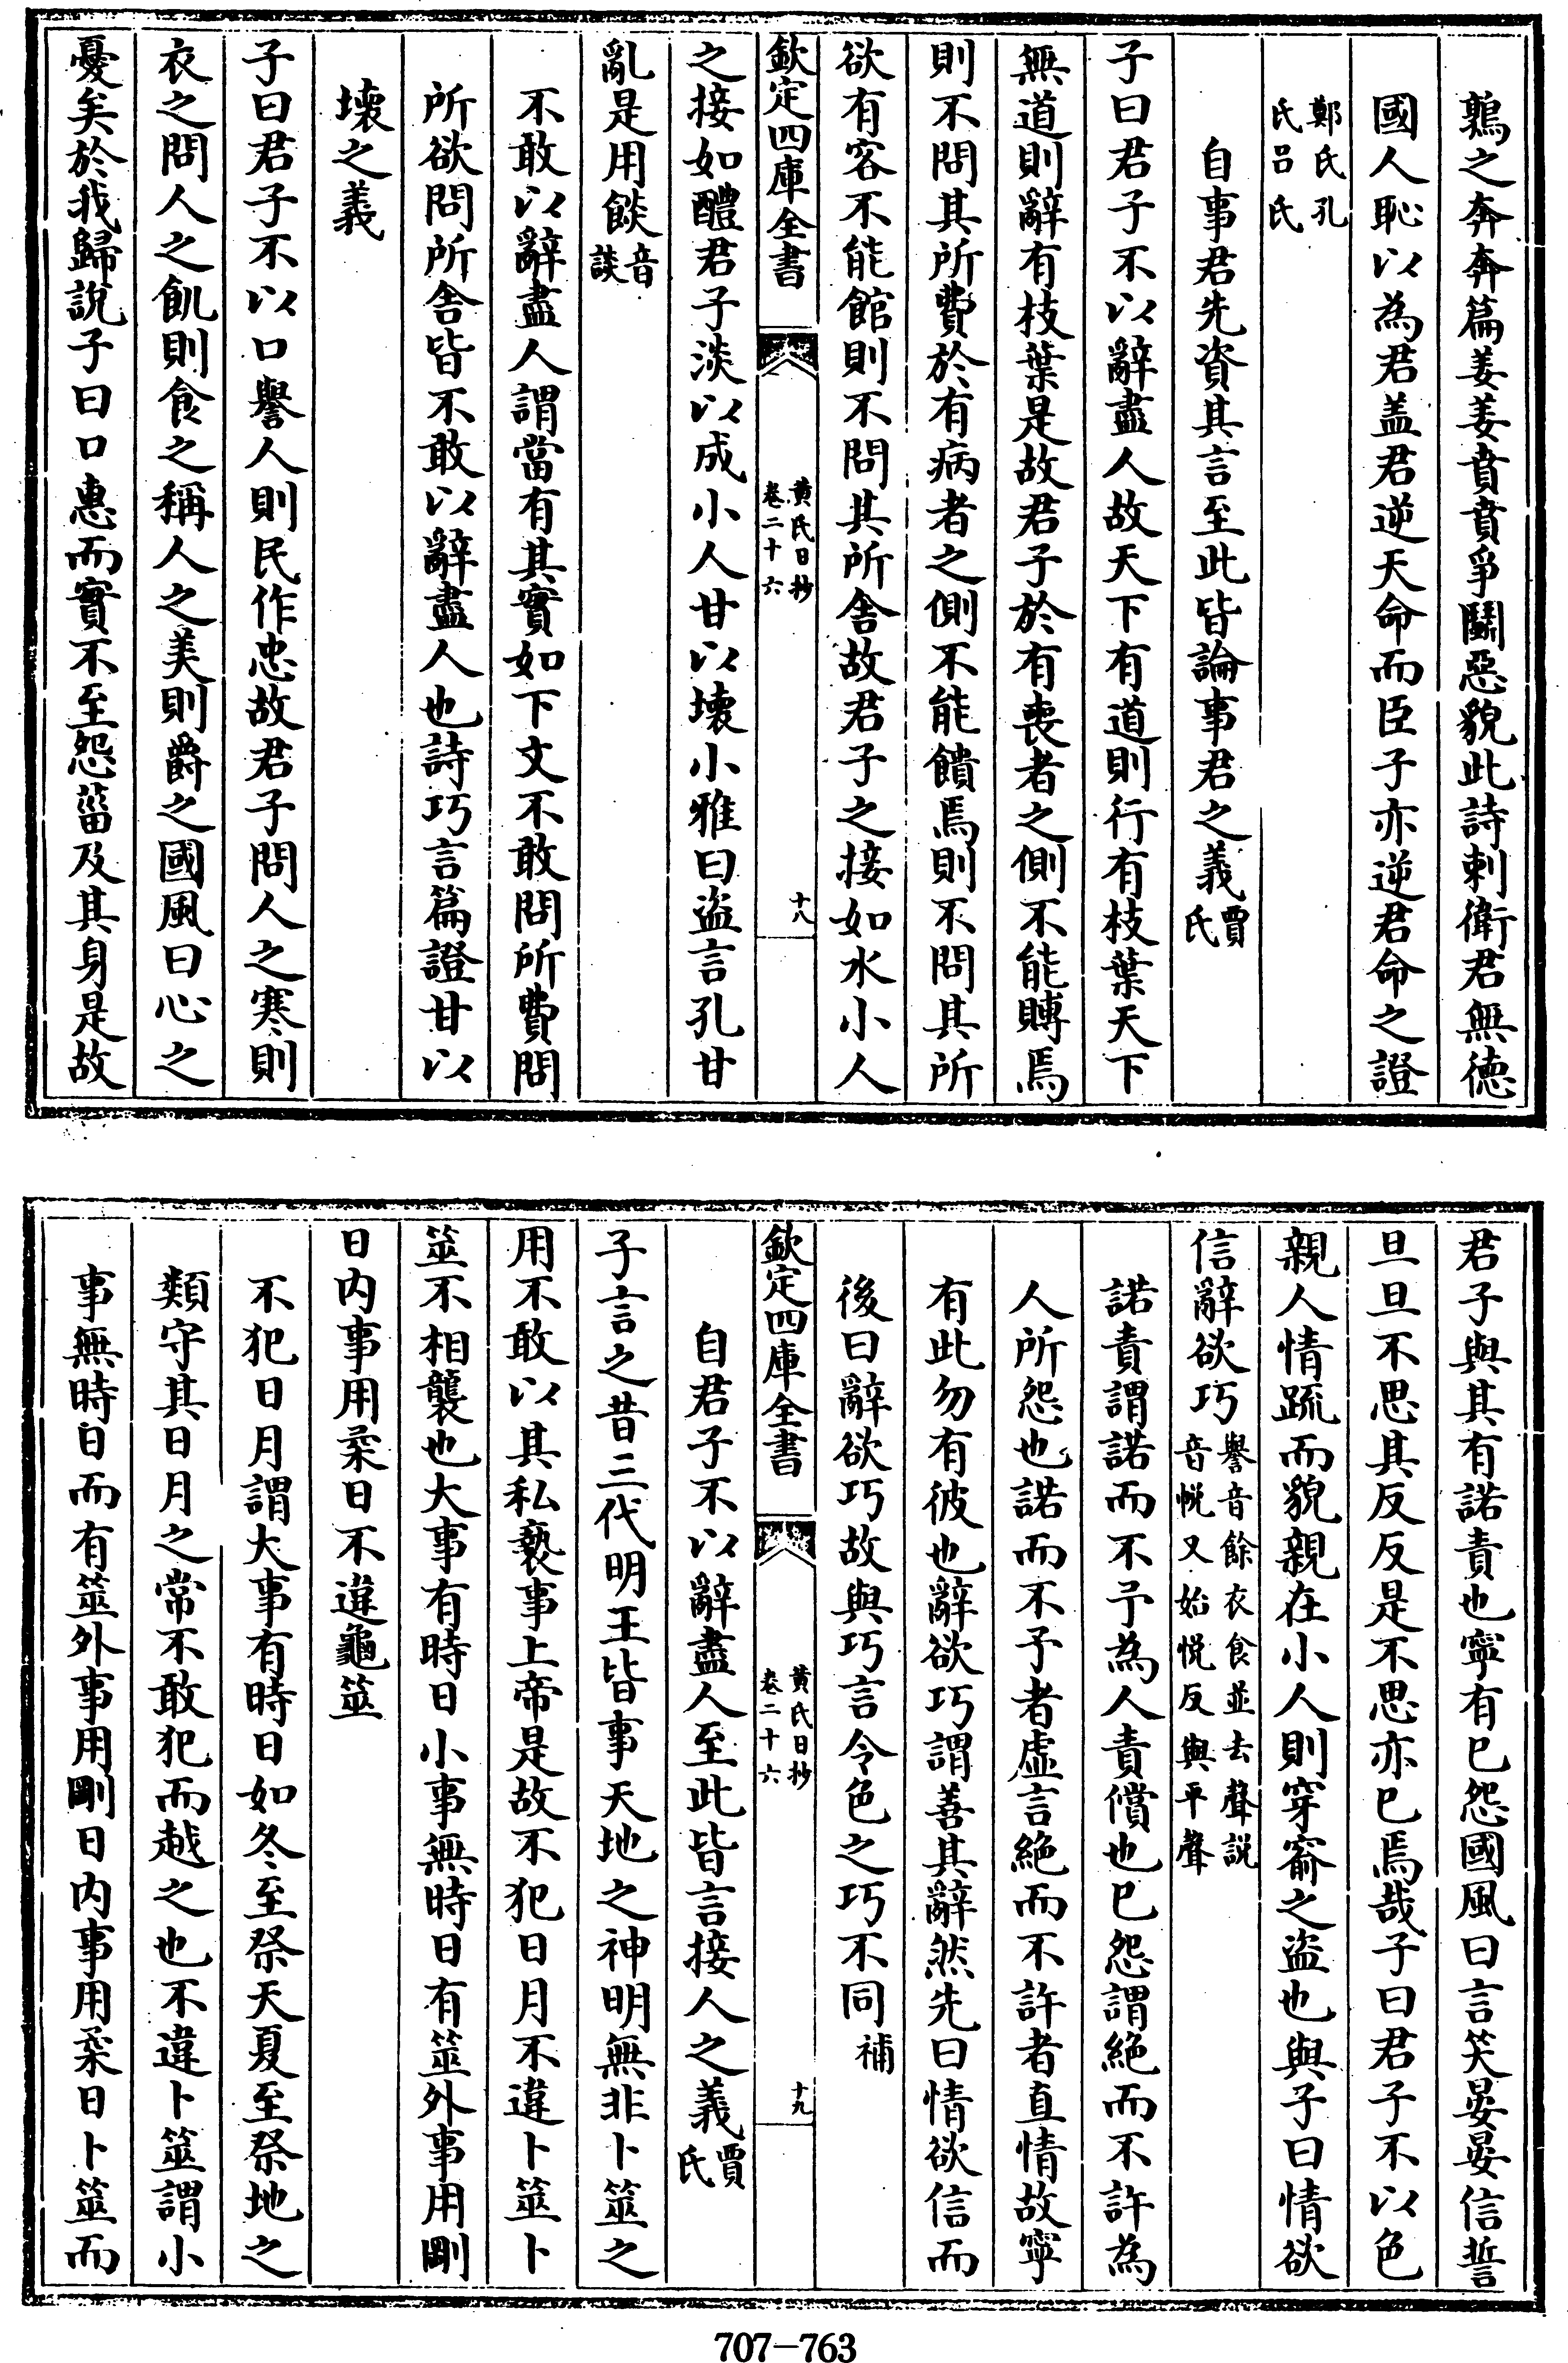 鶉之奔奔篇姜姜賁賁爭鬭惡貌此詩刺衛君無徳
國人恥以為君盖君逆天命而臣子亦逆君命之證
鄭氏孔
氏吕氏
自事君先資其言至此皆論事君之義賈氏
子曰君子不以辭盡人故天下有道則行有枝葉天下
無道則辭有枝葉是故君子於有喪者之側不能賻焉
則不問其所費於有病者之側不能饋焉則不問其所
欲有客不能館則不問其所舍故君子之接如水小人
欽定四庫全書
黄氏日抄
卷二十六
十八
之接如醴君子淡以成小人甘以壊小雅曰盗言孔甘
亂是用餤音談
不敢以辭盡人謂當有其實如下文不敢問所費問
所欲問所舍皆不敢以辭盡人也詩巧言篇證甘以
壊之義
子曰君子不以口譽人則民作忠故君子問人之寒則
衣之問人之飢則食之稱人之美則爵之國風曰心之
憂矣於我歸説子曰口惠而實不至怨菑及其身是故
君子與其有諾責也寧有已怨國風曰言笑晏晏信誓
旦旦不思其反反是不思亦已焉哉子曰君子不以色
親人情疏而貌親在小人則穿窬之盗也與子曰情欲
信辭欲巧譽音餘衣食並去聲説音悦又始悦反與平聲
諾責謂諾而不予為人責償也已怨謂絶而不許為
人所怨也諾而不予者虚言絶而不許者直情故寧
有此勿有彼也辭欲巧謂善其辭然先曰情欲信而
後曰辭欲巧故與巧言令色之巧不同補
欽定四庫全書
黄氏日抄
卷二十六
十九
自君子不以辭盡人至此皆言接人之義賈氏
子言之昔三代明王皆事天地之神明無非卜筮之
用不敢以其私褻事上帝是故不犯日月不違卜筮卜
筮不相襲也大事有時日小事無時日有筮外事用剛
日内事用柔日不違龜筮
不犯日月謂大事有時日如冬至祭天夏至祭地之
類守其日月之常不敢犯而越之也不違卜筮謂小
事無時日而有筮外事用剛日内事用柔日卜筮而
707-763